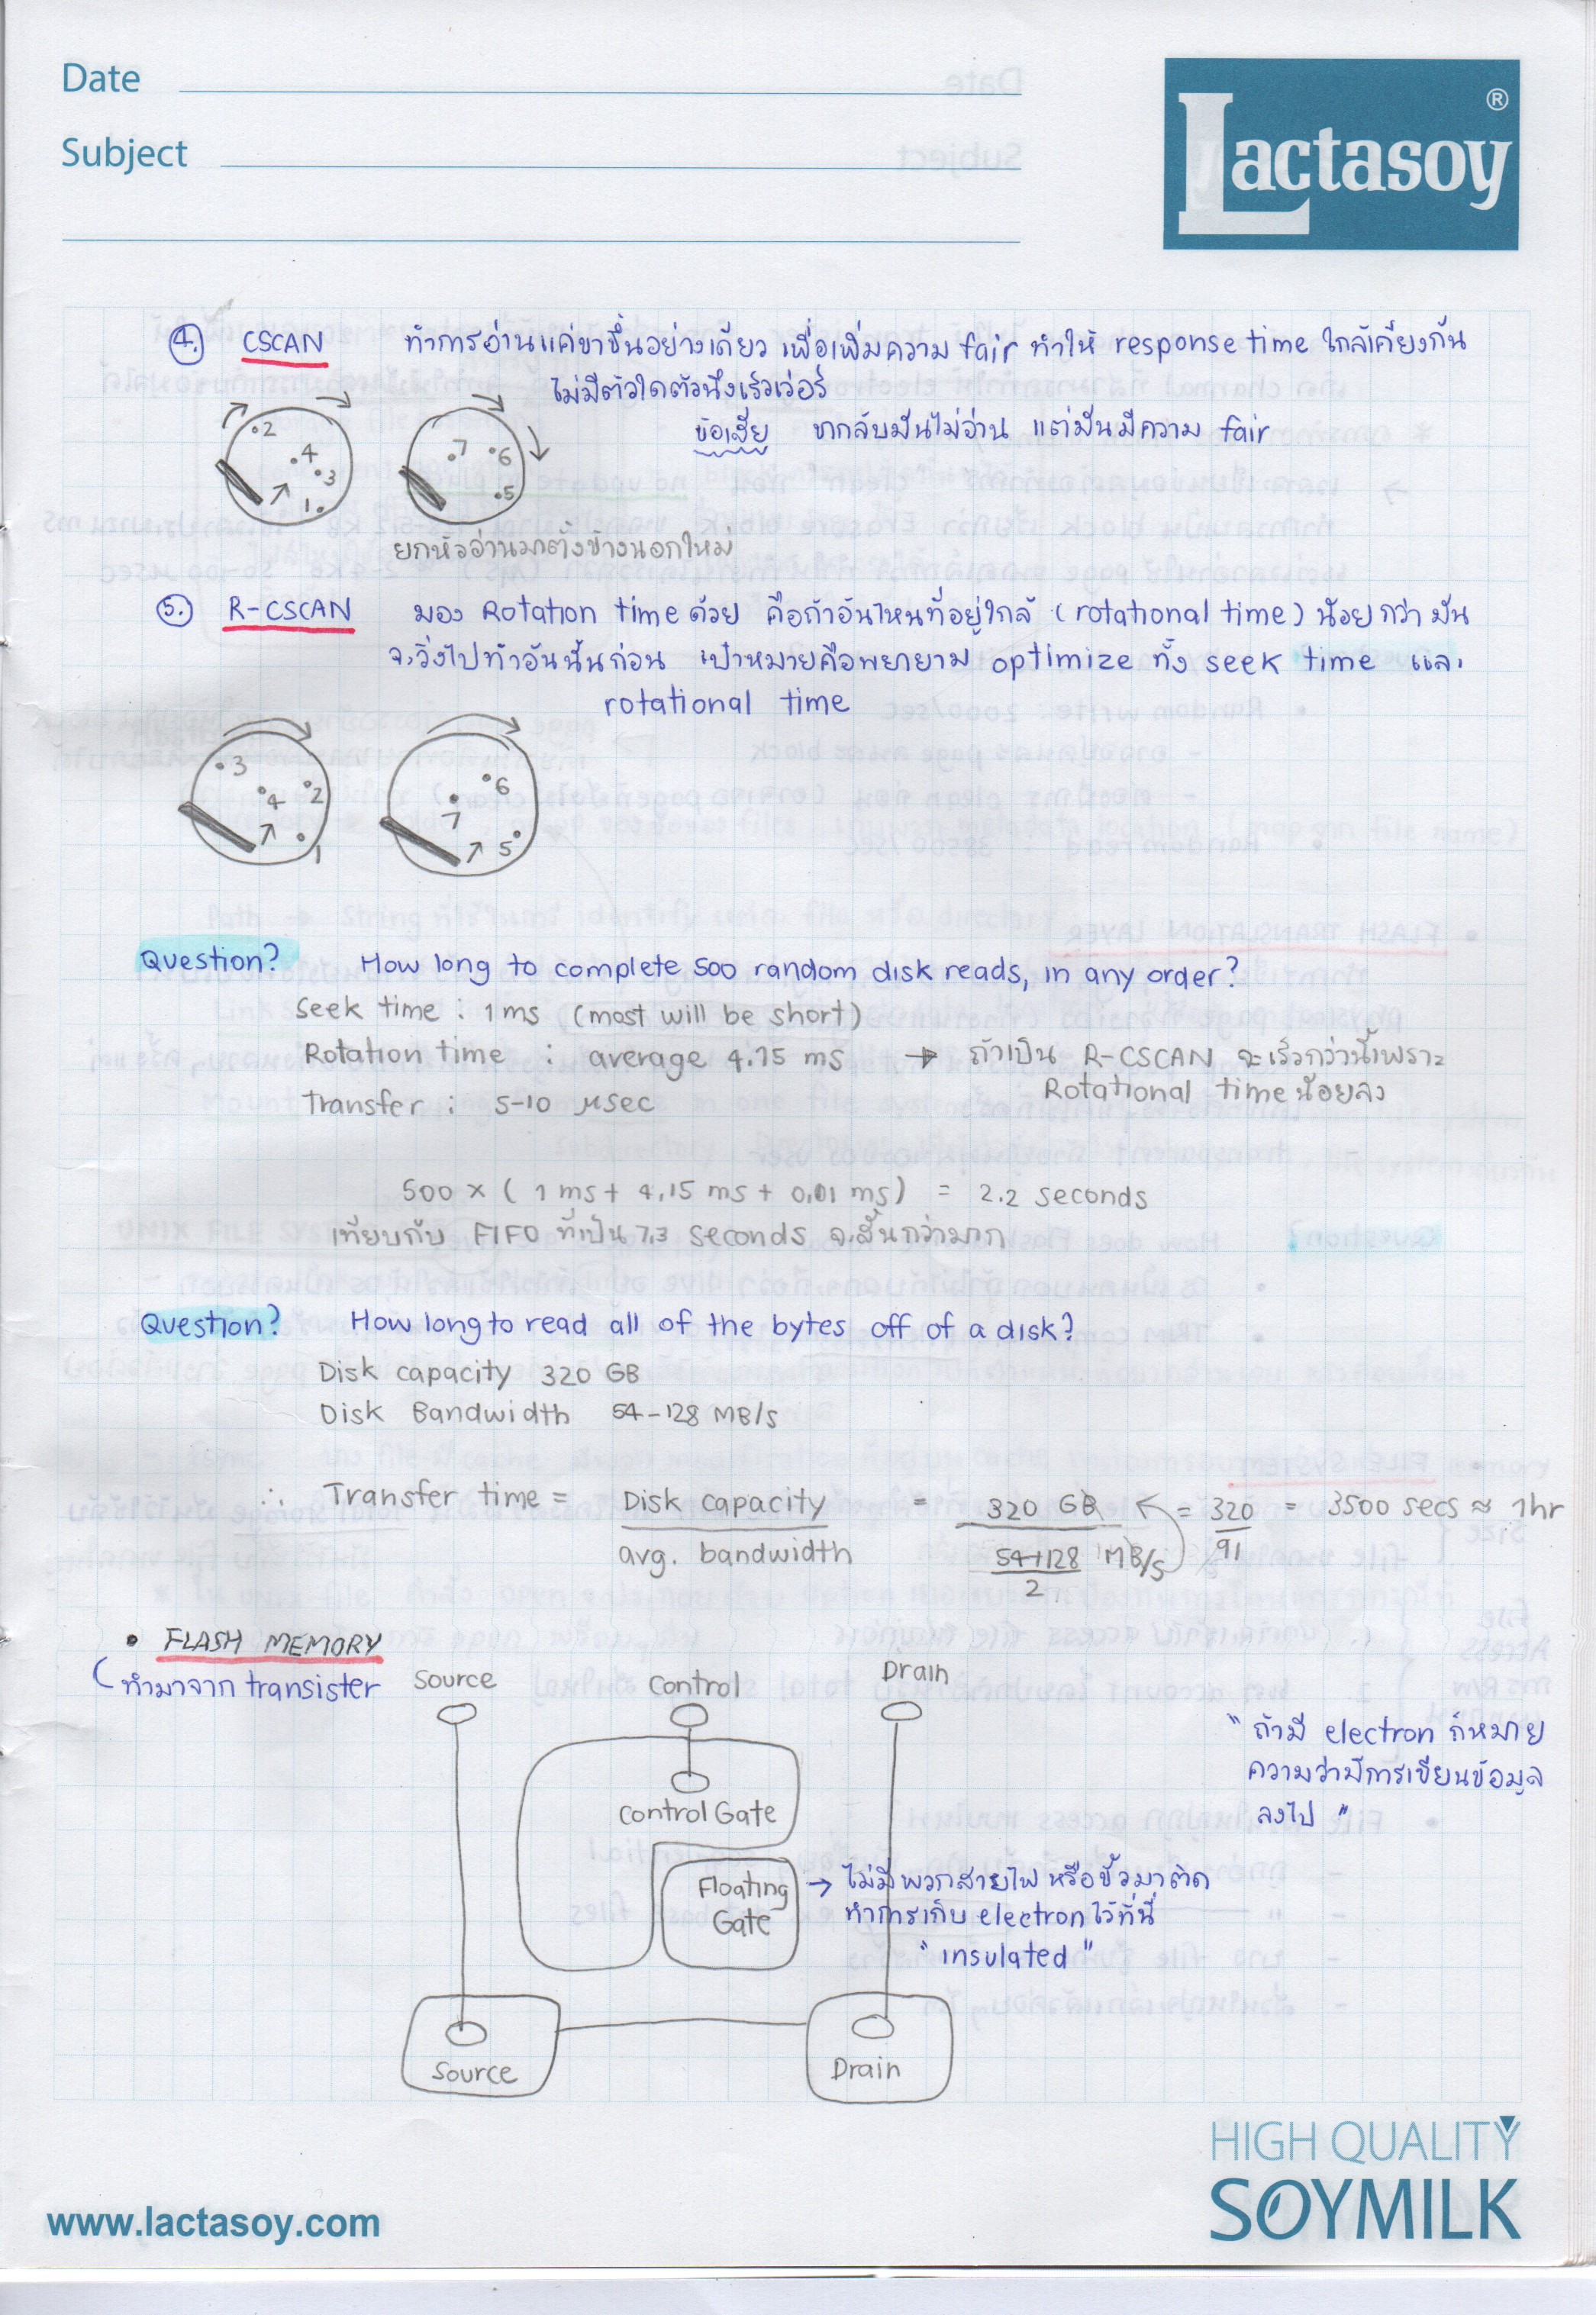 Date
Subject
Lactasoy ®
4. CSCAN ทำการอ่านแค่ขาขึ้นอย่างเดียว เพื่อเพิ่มความ fair ทำให้ response time ใกล้เคียงกัน
ไม่มีตัวใดตัวนึงเร็วเว่อร์
ข้อเสีย ขากลับมันไม่อ่าน แต่มันมีความ fair
2 4 3 1
7 6 5
ยกหัวอ่านมาตั้งข้างนอกใหม่
5. R-CSCAN มอง Rotation time ด้วย คือถ้าอันไหนที่อยู่ใกล้ (rotational time) น้อยกว่า มัน
จะวิ่งไปทำอันนั้นก่อน เป้าหมายคือพยายาม optimize ทั้ง seek time และ
rotational time
3 4 2 1
6 7 5
Question? How long to complete 500 random disk reads, in any order?
Seek time : 1 ms (most will be short)
Rotation time : average 4.15 ms → ถ้าเป็น R-CSCAN จะเร็วกว่านี้เพราะ
Rotational time น้อยลง
Transfer : 5-10 μsec
500 × ( 1 ms + 4.15 ms + 0.01 ms) = 2.2 seconds
เทียบกับ FIFO ที่เป็น 7.3 seconds จะสั้นกว่ามาก
Question? How long to read all of the bytes off of a disk?
Disk capacity 320 GB
Disk Bandwidth 54-128 MB/s
∴ Transfer time = Disk capacity = 320 GB = 320 = 3500 secs ≈ 1hr
avg. bandwidth 54+128 MB/s 91
2
• FLASH MEMORY
ทำมาจาก transister
Source Control Drain
" ถ้ามี electron ก็หมาย
ความว่ามีการเขียนข้อมูล
ลงไป "
Control Gate
Floating
Gate
→ ไม่มีพวกสายไฟ หรือขั้วมาติด
ทำการเก็บ electron ไว้ที่นี่
" insulated "
Source Drain
HIGH QUALITY
SOYMILK
www.lactasoy.com